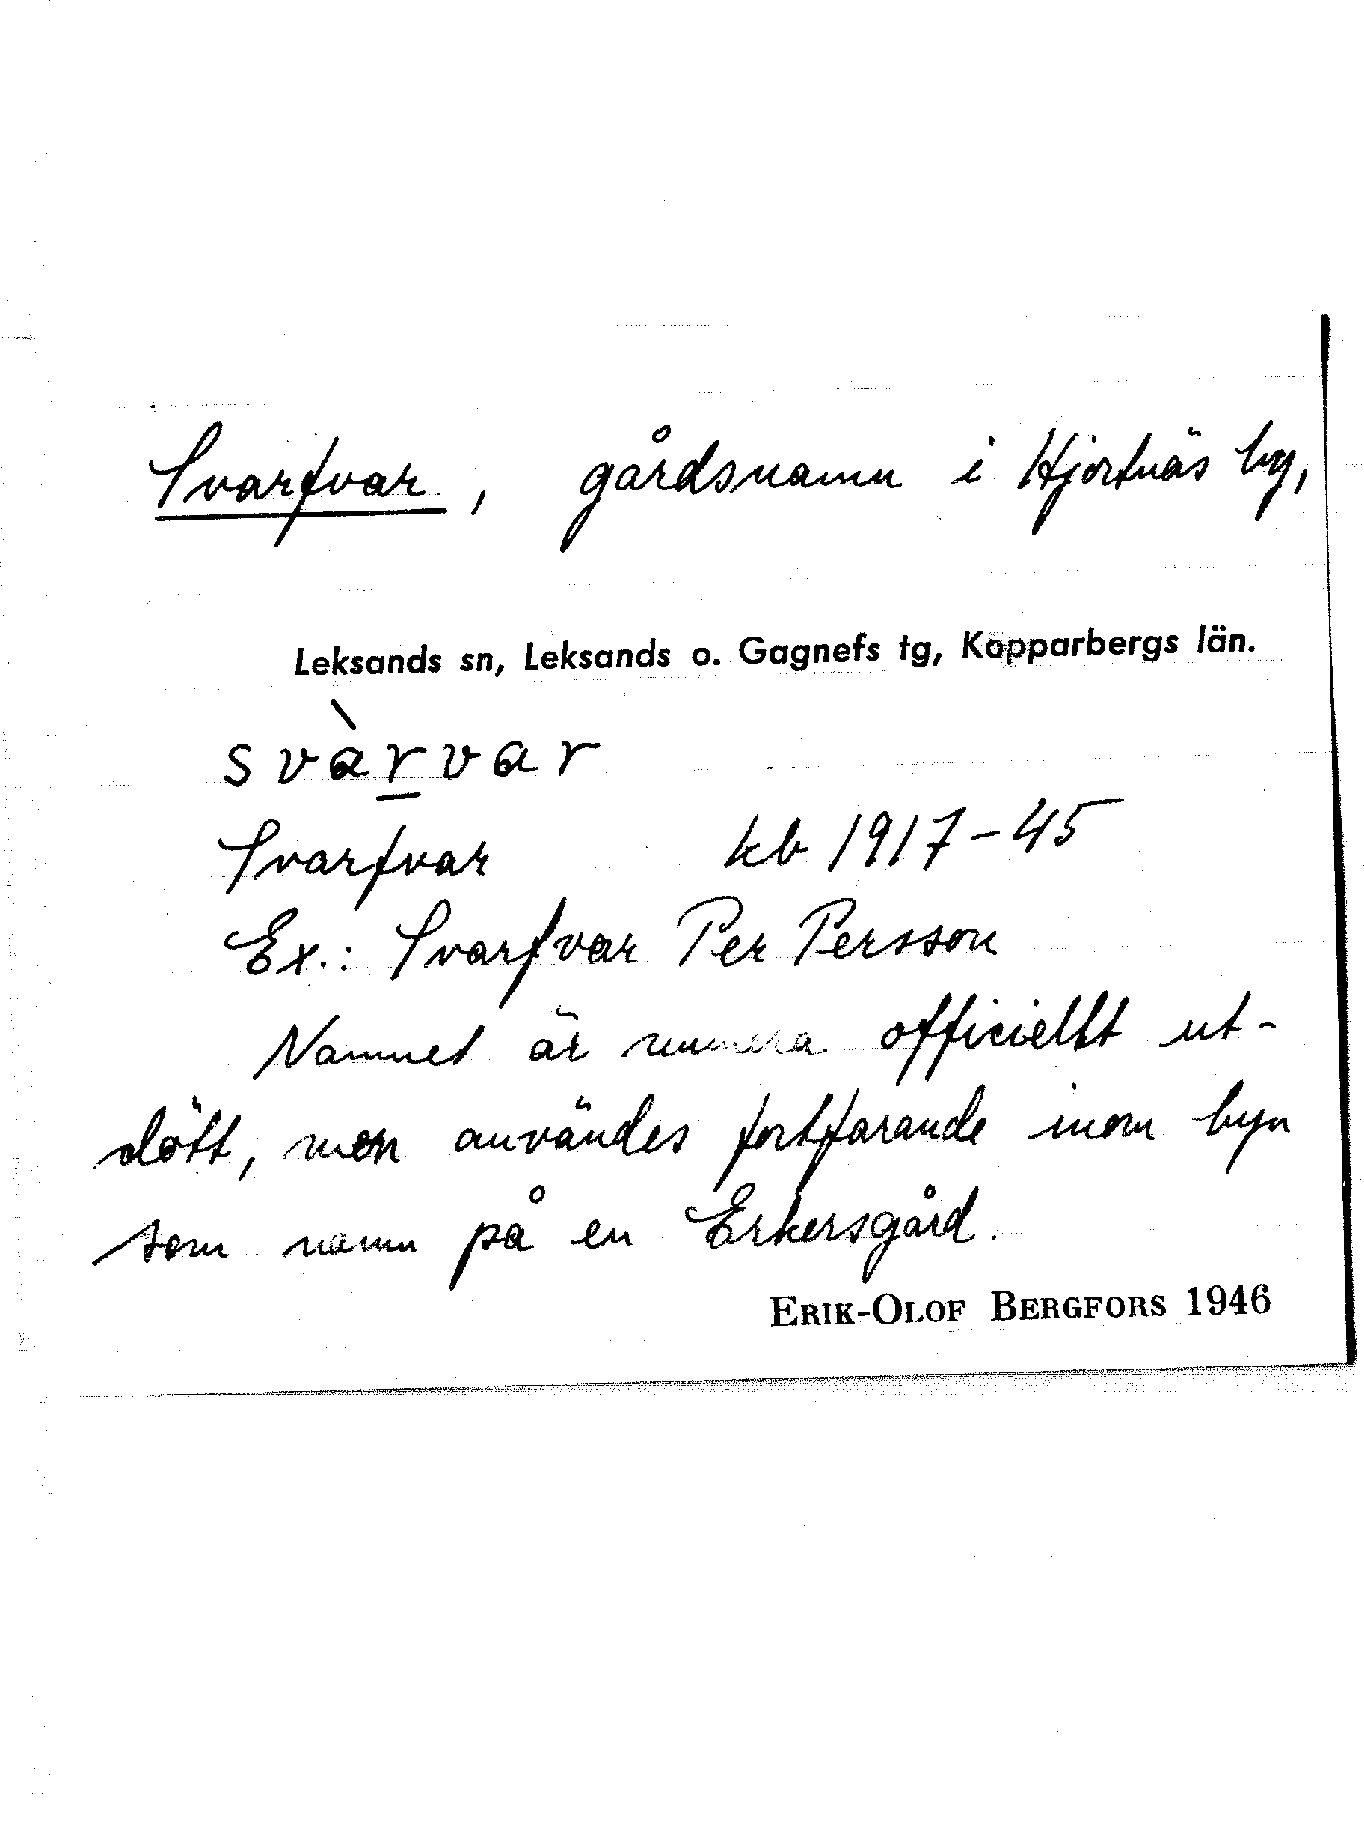 Svarfvar, gårdsnamn i Hjortnäs by,
Leksands sn, Leksands o. Gagnefs tg, Kopparbergs län.
svàrvar
Svarfvar kb 1917-45
Ex.: Svarfvar Per Persson
Namnet är numera officiellt ut-
dött, men användes fortfarande inom byn
som namn på en Erkersgård.
ERIK-OLOF BERGFORS 1946